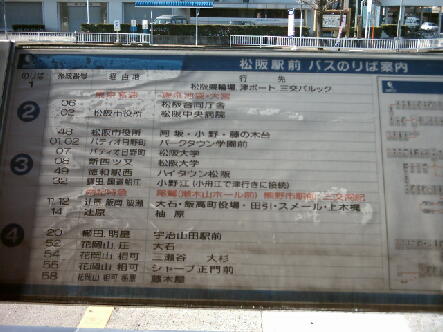 松阪駅前 バスのりば案内
のりば 系統番号 経由地 行先
1 松阪競輪場 津ポート 三交パルック
2 06 松阪合同庁舎
02 松阪市役所 松阪中央病院
48 松阪市役所 阿坂・小野・藤の木台
01.02 パティオ日野町 パークタウン学園前
07 パティオ日野町 松阪大学
3 08 新四ツ又 松阪大学
49 徳和駅西 ハイタウン松阪
32 鎌田 国道船江 小野江(小舟江で津行きに接続)
11.12 大石・飯高町役場・田引・スメール・上木梶
14 辻原 柚原
4 20 櫛田.明星 宇治山田駅前
52 花岡山.庄 大石
54 花岡山.相可 三瀬谷 大杉
55 花岡山.相可 シャープ正門前
58 花岡山.相可 藤木屋